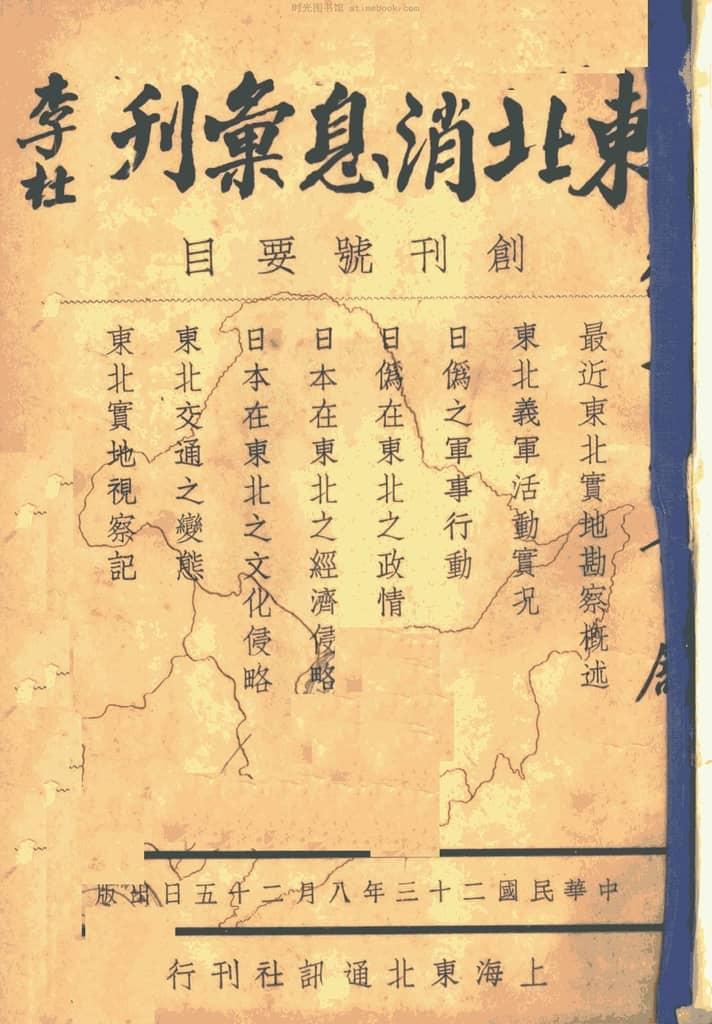 时光图书馆 atimebook.com
東北消息彙刊
李杜
創刊號要目
最近東北實地勘察概述
東北義軍活動實況
日僞之軍事行動
日僞在東北之政情
日本在東北之經濟侵略
日本在東北之文化侵略
東北交通之變態
東北實地視察記
中華民國二十三年八月二十五日出版
上海東北通訊社刊行